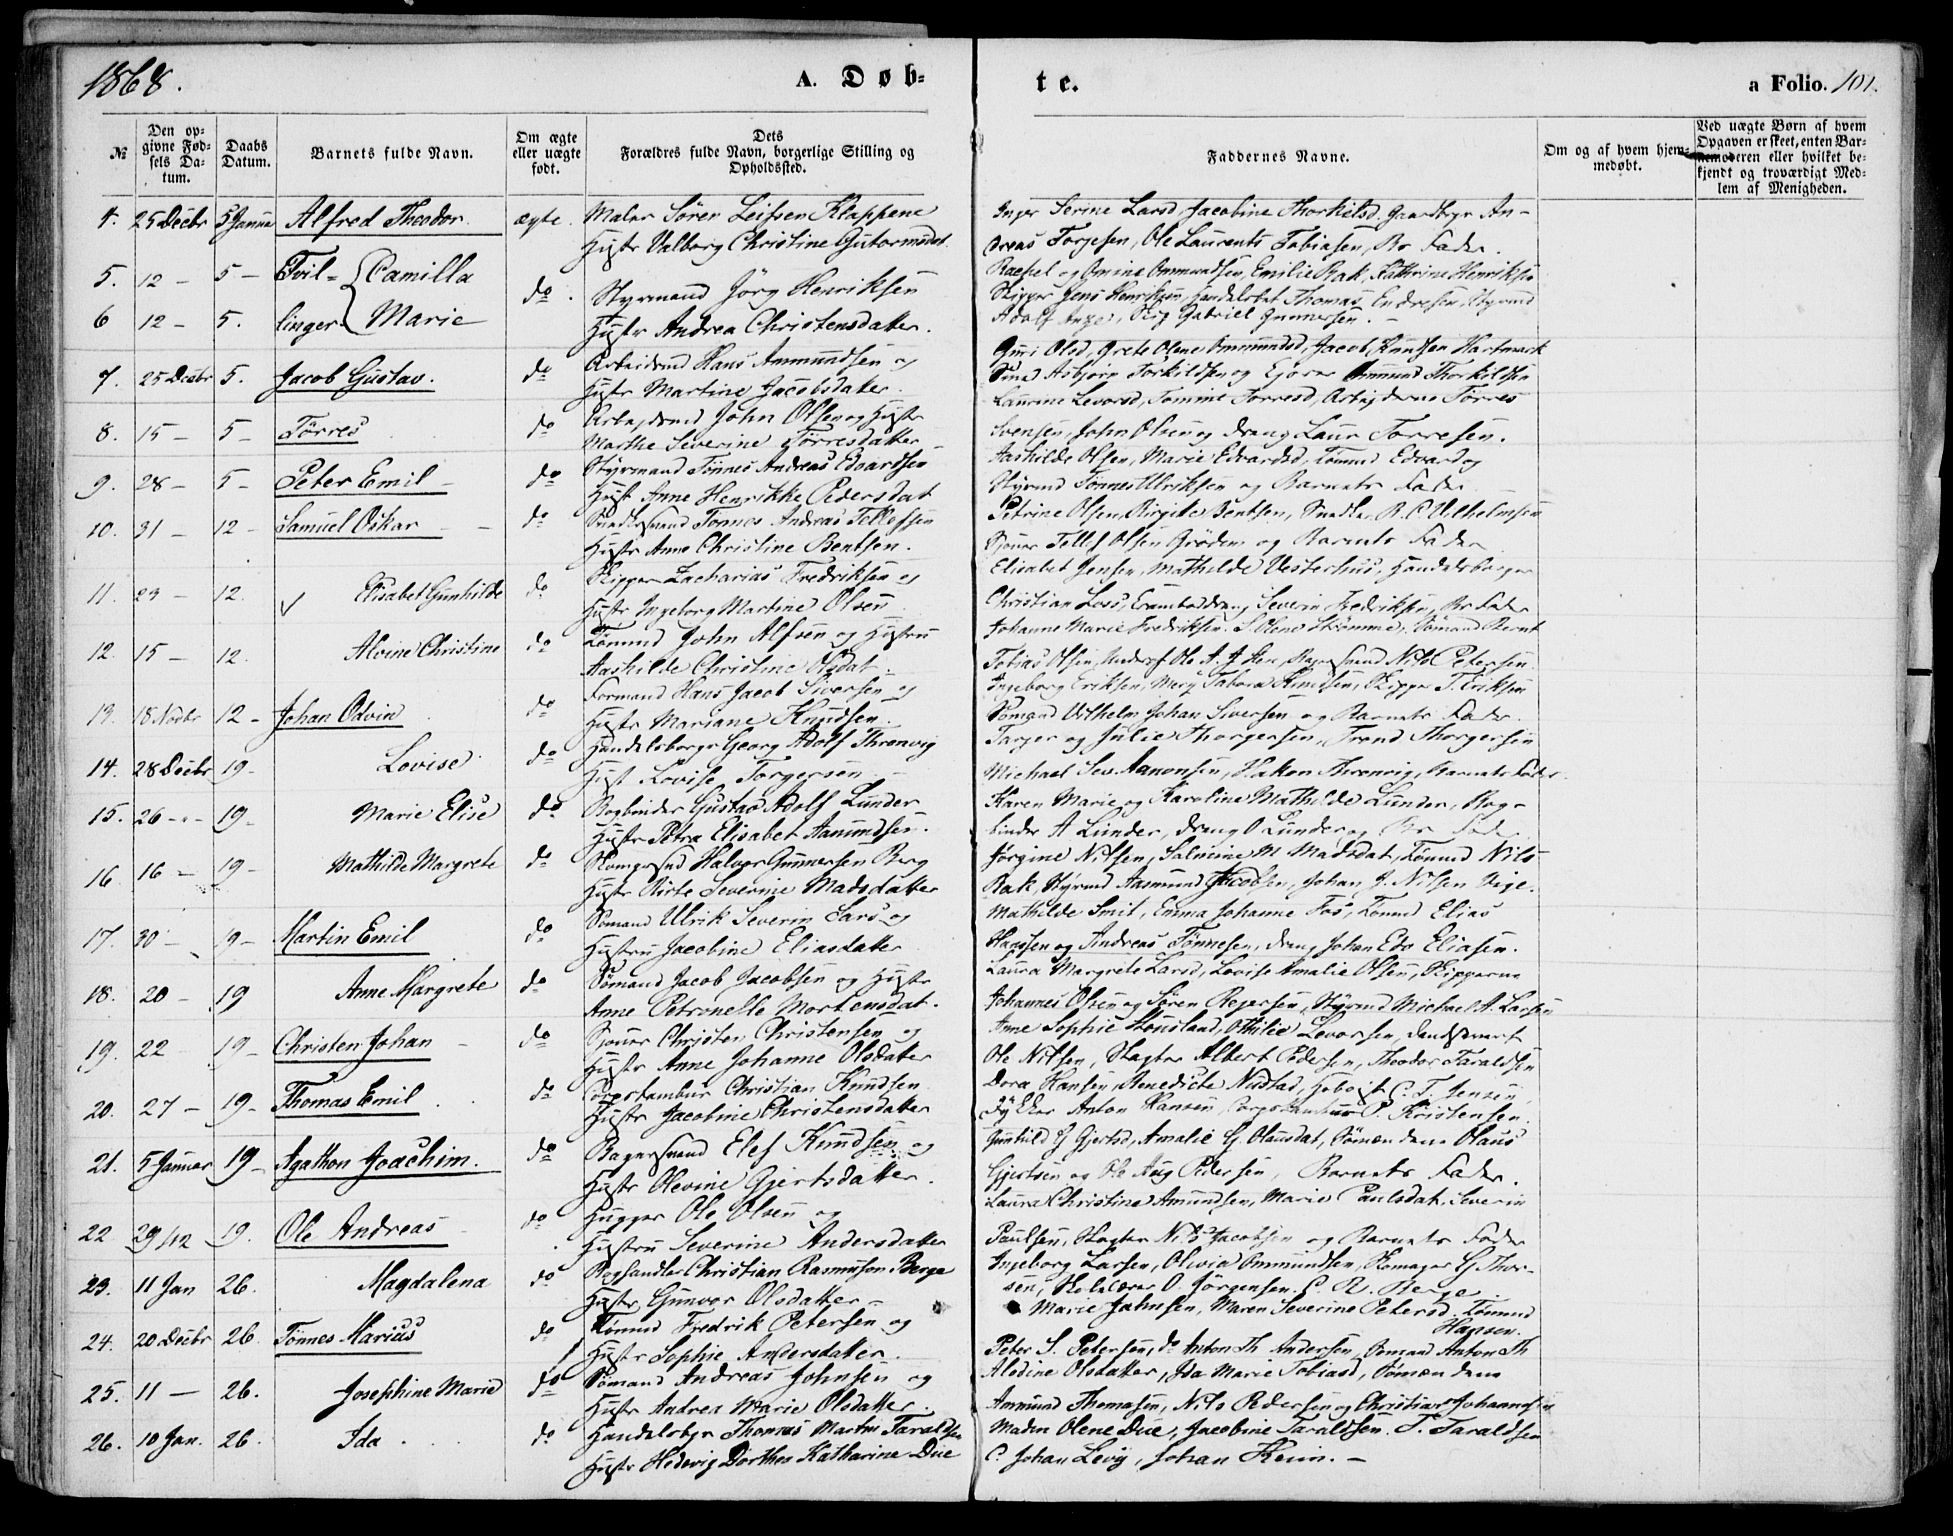 1868.
A. Døb=
te.
a Folio. 101.
№
Den op=
givne Fød=
sels Da=
tum.
Daabs
Datum.
Barnets fulde Navn.
Om ægte
eller uægte
født.
Dets
Forældres fulde Navn, borgerlige Stilling og
Opholdssted.
Faddernes Navne.
Om og af hvem hjem=
medøbt.
Ved uægte Børn af hvem
Opgaven er skeet, enten Bar=
nemoderen eller hvilket be=
kjendt og troværdigt Med=
lem af Menigheden.
4. 25 Decbr 5 Januar Alfred Theodor ægte. Maler Sören Leifsen Klappene
Hustr Valborg Christine Gutormsdat.
Inger Serine Larsd, Jacobine Thorkilsd. Gaardbgr An-
dreas Torjesen, Ole Laurents Tobiasen, Br Fader.
5. 12 - 5 - Tvil- Camilla
6 12 - 5. linger Marie
do. Styrmand Jörg Henriksen
Hustr Andrea Christensdatter.
Rachel og Omine Ommundsen, Emilie Bak, Kathrine Henriksen
Skipper Jens Henriksen, Thomas Endresen, Styrmd
Adolf Gabriel Gunnersen. -
7. 25 Decbr 5. Jacob Gustav. do Arbeidsmd Hans Ammundsen og
Hustr Martine Jacobsdatter.
Guri Olsd, Grete Olene Ommundsd, Jacob Knudsen Hartmark
Asbjörn Torkildsen og Ommund Thorkildsen
8. 15 - 5 - Törres do Arbeidsmd John Olsen og Hustr
Marthe Severine Törresdatter
Laurine Levorsd, Tomine Torresd, Arbeiderne Törres
Svensen, John Olsen og dreng Laur Torresen.
9. 28 - 5 - Peter Emil - do Styrmand Tönnes Andreas Edvardsen
Hust Anne Henrikke Pedersdat
Aashilde Olsen, Marie Edvardsd, Tömmd Edvard og
Styrmd Tönnes Ulriksen og Barnets Fader
10. 31 - 12 - Samuel Oskar - do Tonnes Andreas Tellefsen
Hustr Anne Christine Bentsen.
Petrine Olsen, Birgitte Bentsen, R. C. Vilhelmsen
Tellef Olsen og Barnets Fader
11. 23 - 12. Elisabet Gunhilde do Skipper Zacharias Fredriksen og
Hustr Ingeborg Martine Olsen.
Elisabet Jensen, Mathilde Vesterhus, Handelsborger
Christian Severin Fredriksen, Br Fader
12. 15 - 12. Alvine Christine do Tömmd John Alfsen og Hustru
Aashilde Christine Olsdat.
Johanne Marie Fredriksen. Olene Strömme, Sömand Bernt
Tobias Olsen, Ole A. Nils Petersen.
13. 18 Novbr 12 - Johan Odvin do Formand Hans Jacob Siversen og
Hustr Mariane Knudsen.
Ingeborg Eriksen, Mary Tabora Knudsen, Skipper T. Eriksen
Sömand Vilhelm Johan Siversen og Barnets Fader.
14. 28 Decbr 19 - Lovise do Handelsborgr Georg Adolf Thronvig
Hust Lovise Torgersen -
Torger og Julie Thorgersen, Trond Thorgersen
Michael Aanonsen, Hakon Thronvig, Barnets Fader
15. 26 - 19 - Marie Elise do Bogbinder Gustav Adolf Lunder
Hustr Petra Elisabet Aanundsen.
Karen Marie og Karoline Mathilde Lunder, Bog-
binder A Lunder, dreng O Lunder og Br Fader
16 16 - 19 - Mathilde Margrete do Halvor Gunnersen Berg
Hustr Birte Severine Madsdatter
Jörgine Nilsen, Salmine M. Madsdat, Tömmd Nils
Bak, Styrmd Aasmund Jacobsen, Johan J. Nilsen Vige.
17. 30 - 19 - Martin Emil do Sömand Ulrik Severin Lars og
Hustru Jacobine Eliasdatter
Mathilde Smit, Emma Johanne Fos, Tömmd Elias
Hansen og Andreas Tönnesen, dreng Johan Edv Eliasen.
18. 20 - 19 Anne Margrete do Sömand Jacob Jacobsen og Hustr
Anne Petronelle Mortensdat.
Laura Margrete Larsd, Lovise Amalie Olsen, Skipperne
Johannes Olsen og Sören Reyersen, Styrmd Michael A. Larsen
19. 22 19 - Christen Johan - do Christen Christensen og
Hustr Anne Johanne Olsdatter
Anne Sophie Stousland, Othilie Levorsen,
Ole Nilsen, Slagter Albert Pedersen, Theodor Taraldsen
20. 27 - 19 - Thomas Emil . do Corpstambur Christian Knudsen
Hustr Jacobine Christensdatter
Dora Hansen, Benedicte Nustad, C. F. Jensen,
Anton Hansen, Corpstambur P. Kristensen.
21. 5 Januar 19 - Agathon Joachim. do Bagersvend Elef Knudsen og
Hustr Olevine Gjertsdatter.
Gunhild G Gjertsd, Amalie G. Olausdat, Sömændene Olaus
Gjertsen og Ole Aug Pedersen, Barnets Fader.
22 29/12 19. Ole Andreas do Hugger Ole Olsen og
Hustru Severine Andersdatter
Laura Christine Amundsen, Marie Paulsdat, Severin
Paulsen, Slagter Nils Jacobsen og Barnets Fader
23. 11 Jan 26. Magdalena do Christian Rasmuson Berge
Hustr Gunvor Olsdatter -
Ingeborg Larsen, Olivia Ommundsen, Skomager G Thor-
sen, Skolelærer O. Jörgensen. C. R. Berge
24. 20 Decbr 26. Tönnes Marius do Tömmd Fredrik Petersen og
Hustr Sophie Andersdatter.
Marie Jahnsen, Maren Severine Petersd. Tömmd
Hansen.
Peter S. Petersen, do Anton Th Andersen, Sömand Anton Th
25. 11 - 26. Josephine Marie do Sömand Andreas Johnsen og
Hustr Andrea Marie Olsdatter.
Alsdine Olsdatter, Ida Marie Tobiasd, Sömændene
Ammund Thomasen, Nils Pedersen og Christian Johannesen
26. 10 Jan. 26. Ida . do Handelsbgr Thomas Martin Taraldsen
Hustr Hedevig Dorthea Katharina Due
Madm Olene Due, Jacobine Taraldsen. T. Taraldsen
C. Johan Levy, Johan Keim. -